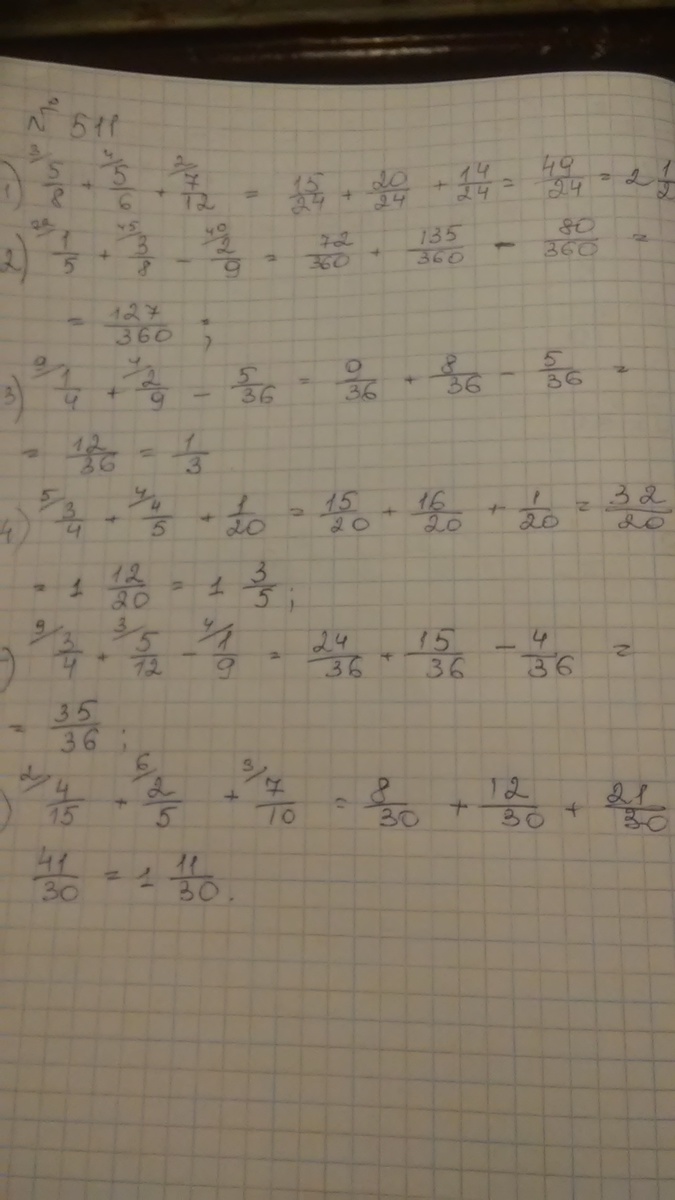 № 511
1) 3/ 5/8 + 4/ 5/6 + 2/ 7/12 = 15/24 + 20/24 + 14/24 = 49/24 = 2 1/2
2) 72/ 1/5 + 45/ 3/8 - 40/ 2/9 = 72/360 + 135/360 - 80/360 =
= 127/360 ;
3) 9/ 1/4 + 4/ 2/9 - 5/36 = 9/36 + 8/36 - 5/36 =
= 12/36 = 1/3
4) 5/ 3/4 + 4/ 4/5 + 1/20 = 15/20 + 16/20 + 1/20 = 32/20
= 1 12/20 = 1 3/5 ;
) 9/ 3/4 + 3/ 5/12 - 4/ 1/9 = 24/36 + 15/36 - 4/36 =
= 35/36 ;
) 2/ 4/15 + 6/ 2/5 + 3/ 7/10 = 8/30 + 12/30 + 21/30
41/30 = 1 11/30 .